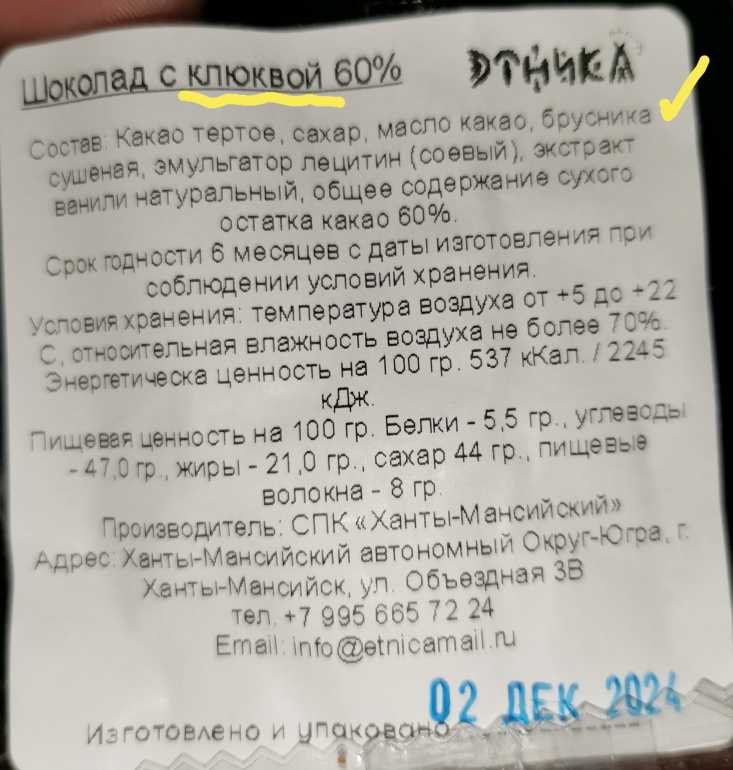 Шоколад с клюквой 60%
ЭТНИКА
Состав: Какао тертое, сахар, масло какао, брусника
сушеная, эмульгатор лецитин (соевый), экстракт
ванили натуральный, общее содержание сухого
остатка какао 60%.
Срок годности 6 месяцев с даты изготовления при
соблюдении условий хранения.
Условия хранения: температура воздуха от +5 до +22
С, относительная влажность воздуха не более 70%.
Энергетическа ценность на 100 гр. 537 кКал. / 2245
кДж.
Пищевая ценность на 100 гр. Белки - 5,5 гр., углеводы
- 47,0 гр., жиры - 21,0 гр., сахар 44 гр., пищевые
волокна - 8 гр.
Производитель: СПК «Ханты-Мансийский»
Адрес: Ханты-Мансийский автономный Округ-Югра, г.
Ханты-Мансийск, ул. Объездная 3В
тел. +7 995 665 72 24
Email: info@etnicamail.ru
02 ДЕК 2024
Изготовлено и упаковано